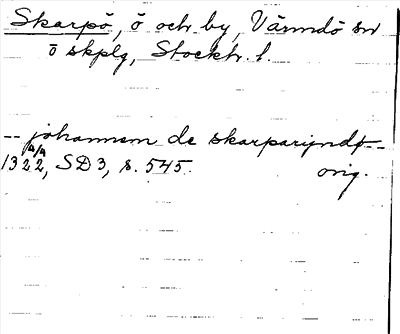 Skarpö, ö och by, Värmdö sn
ö skplg, Stockh. l.
-- johannem de skarparyndp --
1322, SD 3, s. 545. orig.
4/9